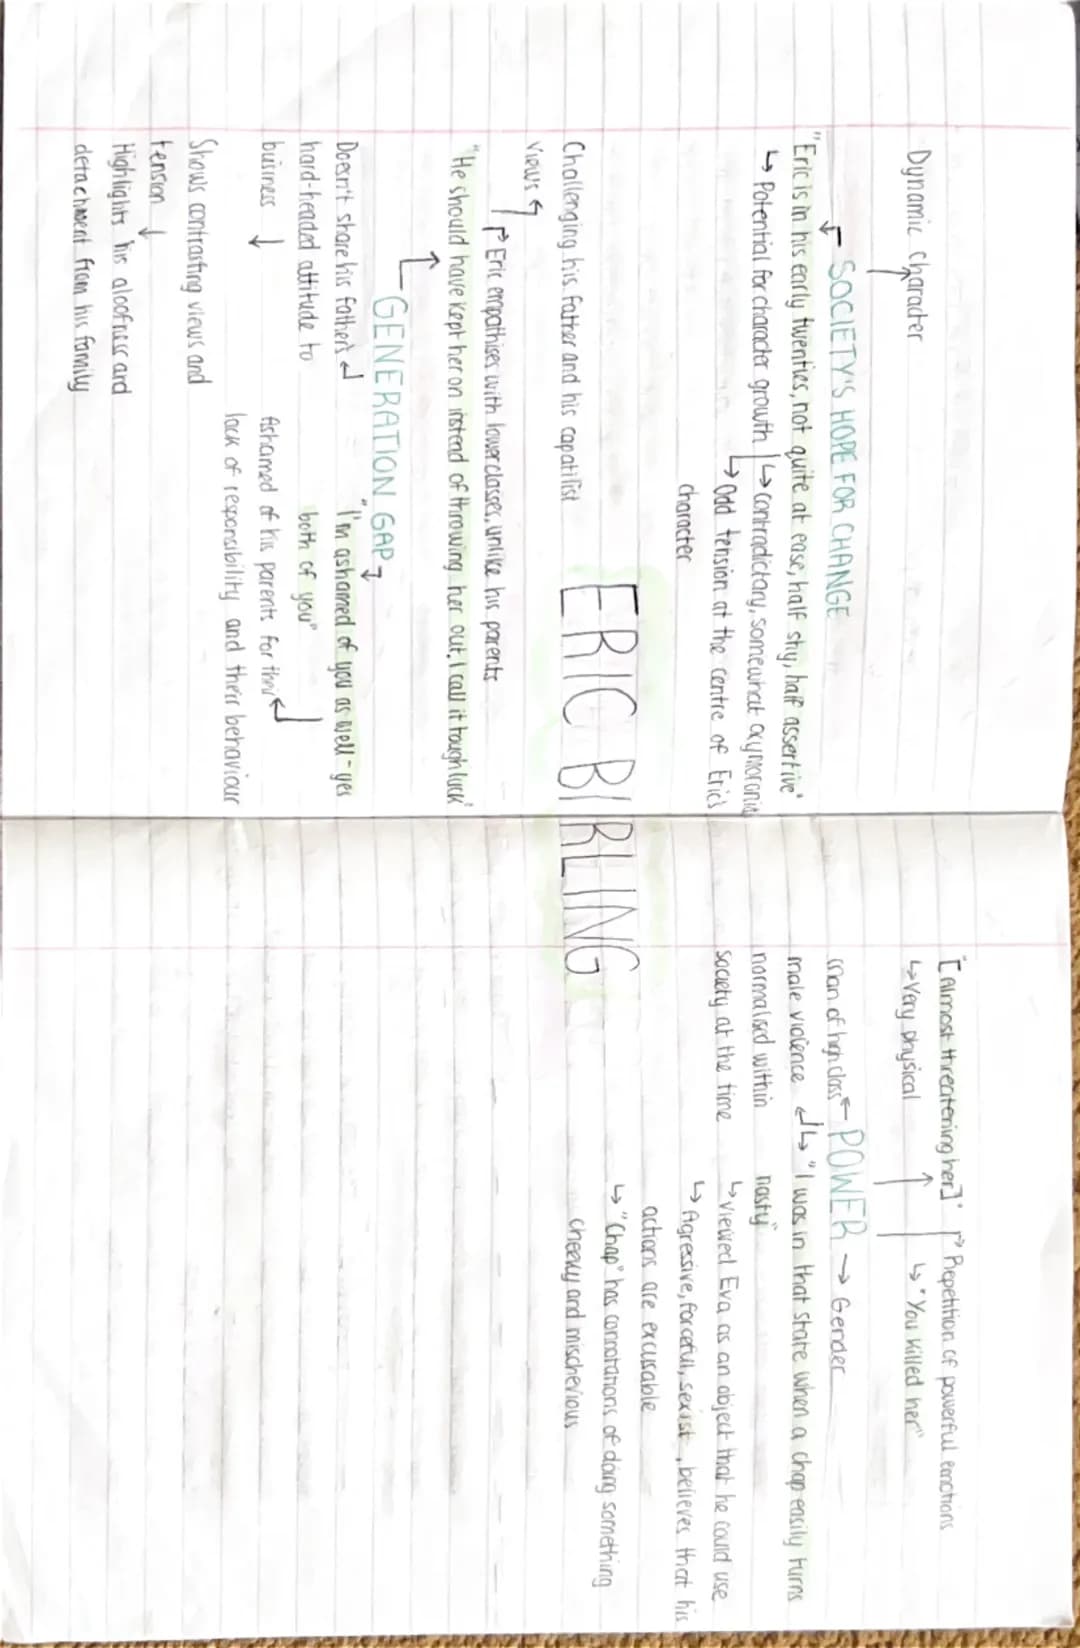 Dynamic character
SOCIETY'S HOPE FOR CHANGE
"Eric is in his early twenties, not quite at ease, half shy, half assertive"
↳ Potential for character growth ↳ contradictary, somewhat oxymoronic
↳ Odd tension at the centre of Eric's
character
Challenging his father and his capatilist
views
Eric empathises with lower classes, unlike his parents
"He should have kept her on instead of throwing her out, I call it tough luck"
GENERATION GAP
Doesn't share his father's
hard-headed attitude to
business ↓
Shows contrasting views and
tension ↓
Highlights his aloofness and
detachment from his family
"I'm ashamed of you as well - yes
both of you"
Ashamed of his parents for their
lack of responsibility and their behaviour
ERIC BIRLING
[Almost threatening her]"
↳ Very physical
Repetition of powerful emotions
↳ "You killed her"
man of high class ← POWER → Gender
male violence
normalised within
society at the time
↳ "I was in that state when a chap easily turns
nasty"
↳ Viewed Eva as an object that he could use
↳ Agressive, forcefull, sexist, believes that his
actions are excusable
↳ "Chap" has connotations of doing something
cheeky and mischevious